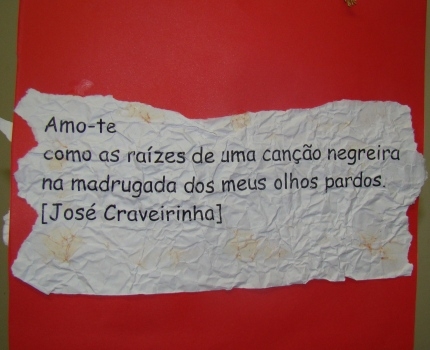 Amo-te
como as raízes de uma canção negreira
na madrugada dos meus olhos pardos.
[José Craveirinha]